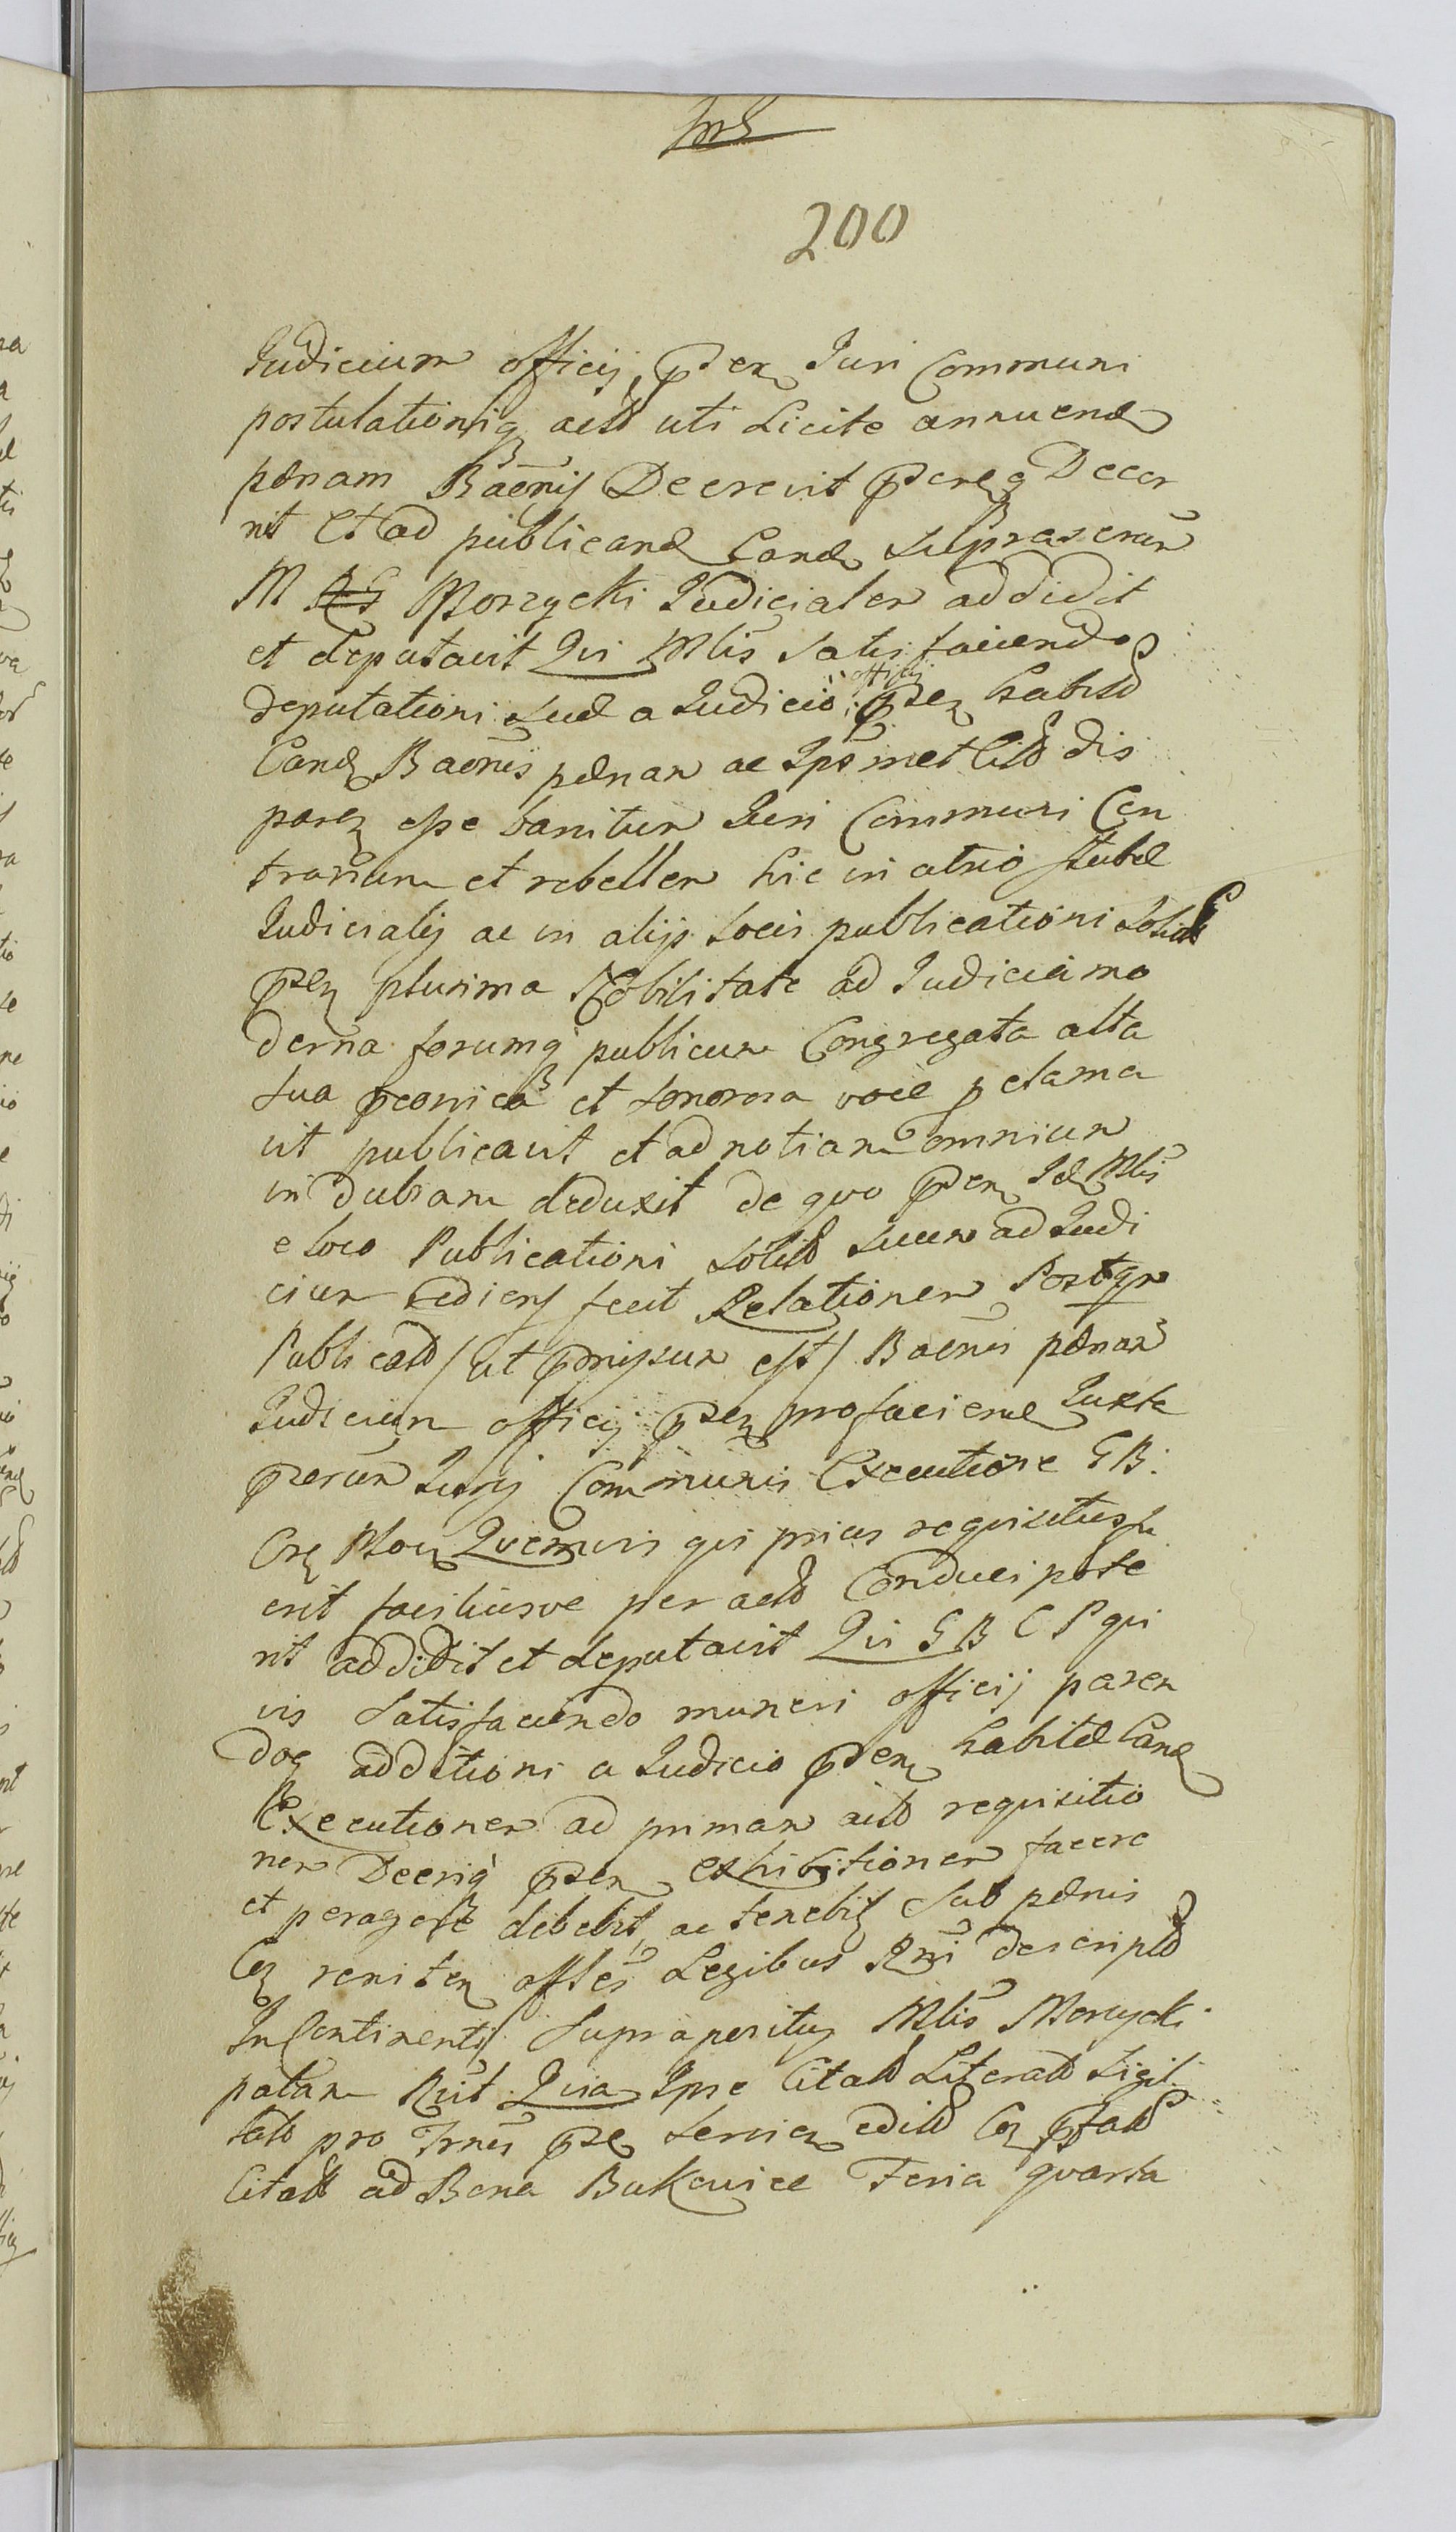 200
Judicium officij psen Juri Communi
postulationiq actor uti Licite annuend
pænam Bãenis Decrevit pereq Decer
nit Et ad publicand Eand suprascrm
M Morzycki Judicialem addidit
et deputavit Qui Mlis satisfaciendo
deputationi suæ a Judicio officij psen habitæ
Eand Baenis pænam ac Ipsmet Citt dis
paren esse banitum Juri Communi Con
trarium et rebellem hic in atrio stubæ
Judicialis ac in alijs Locis publicationi solitis
psen plurima Nobilitate ad Judicia mo
derna forumq publicum Congregata alta
sua et sonorosa voce pclama
vit publicavit et ad notiam omnium
in dubiam deduxit de quo psen Id Mlis
e loco Publicationi solito suum ad Judi
cium rediens fecit Relationem Postqm
Publicatt / ut pmissum est / Baenis pænam
Judicium officij psen pro faciend Juxta
Juris Communis Executione G B:
C Quemvis qui prius requisitus fu
erit faciliusve per actt Conduci pote
rit addidit et deputavit Qui G B C P qui
vis Satisfaciendo muneri officij paren
doq additioni a Judicio psen habitæ Eand
Executionem ad primam actt requisitio
nem Decriq psen exhibitionem facere
et peragere debebit, ac tenebit sub pænis
Con reniten offles Legibus Rni descriptt
In Continenti Supraperitus Mlis Morzycki
palam Rvit Quia Ipse Citatt Literatt Sigil
latt pro Trnis pse servien editt Con pfatt
Citatt ad Bona Bukowice Feria quarta